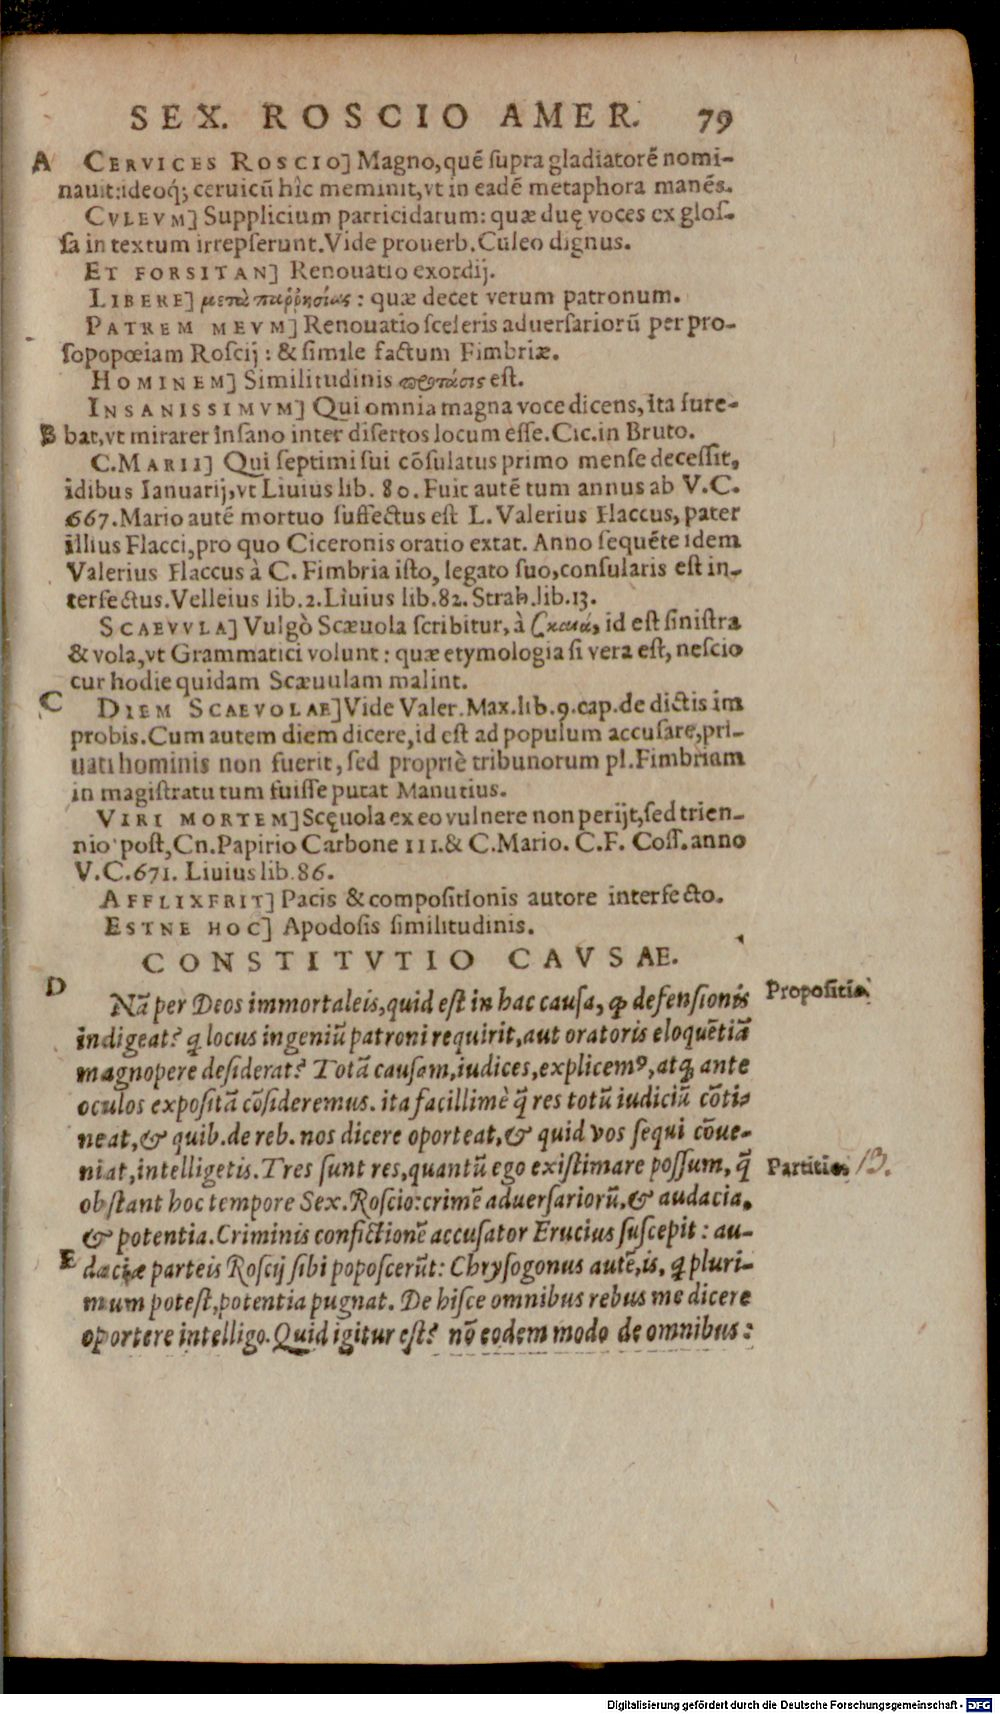 SEX. ROSCIO AMER. 79
A CERVICES ROSCIO] Magno, quē ſupra gladiatorē nomi-
nauit: ideoq́; ceruicū hîc meminit, vt in eadē metaphora manēs.
CVLEVM] Supplicium parricidarum: quæ duę voces ex gloſ-
ſa in textum irrepſerunt. Vide prouerb. Culeo dignus.
ET FORSITAN] Renouatio exordij.
LIBERE] μετὰ παῤῥησίας : quæ decet verum patronum.
PATREM MEVM] Renouatio ſceleris aduerſariorū per pro-
ſopopœiam Roſcij : & ſimile factum Fimbriæ.
HOMINEM] Similitudinis πρότασις eſt.
INSANISSIMVM] Qui omnia magna voce dicens, ita fure-
B bat, vt mirarer inſano inter diſertos locum eſſe. Cic. in Bruto.
C. MARII] Qui ſeptimi ſui cōſulatus primo menſe deceſſit,
idibus Ianuarij, vt Liuius lib. 80. Fuit autē tum annus ab V.C.
667. Mario autē mortuo ſuffectus eſt L. Valerius Flaccus, pater
illius Flacci, pro quo Ciceronis oratio extat. Anno ſequēte idem
Valerius Flaccus à C. Fimbria iſto, legato ſuo, conſularis eſt in-
terfectus. Velleius lib. 2. Liuius lib. 82. Strab. lib. 13.
SCAEVVLA] Vulgò Scæuola ſcribitur, à σκαιά, id eſt ſiniſtra
& vola, vt Grammatici volunt : quæ etymologia ſi vera eſt, neſcio
cur hodie quidam Scæuulam malint.
C DIEM SCAEVOLAE] Vide Valer. Max. lib. 9. cap. de dictis im
probis. Cum autem diem dicere, id eſt ad populum accuſare, pri-
uati hominis non fuerit, ſed propriè tribunorum pl. Fimbriam
in magiſtratu tum fuiſſe putat Manutius.
VIRI MORTEM] Scęuola ex eo vulnere non perijt, ſed trien-
nio poſt, Cn. Papirio Carbone III. & C. Mario. C.F. Coſſ. anno
V.C. 671. Liuius lib. 86.
AFFLIXERIT] Pacis & compoſitionis autore interfecto.
ESTNE HOC] Apodoſis ſimilitudinis.
CONSTITVTIO CAVSAE.
D Nā per Deos immortaleis, quid eſt in hac cauſa, ꝙ defenſionis Propoſitio.
indigeat? ꝗ locus ingeniū patroni requirit, aut oratoris eloquētiā
magnopere deſiderat? Totā cauſam, iudices, explicemꝰ, atq́ ante
oculos expoſitā cōſideremus. ita facillimè q̃ res totū iudiciū cōti-
neat, & quib. de reb. nos dicere oporteat, & quid vos ſequi cōue-
niat, intelligetis. Tres ſunt res, quantū ego exiſtimare poſſum, q̃ Partitio. 13.
obſtant hoc tempore Sex. Roſcio: crimē aduerſariorū, & audacia,
& potentia. Criminis confictionē accuſator Erucius ſuſcepit : au-
E daciæ parteis Roſcij ſibi popoſcerūt: Chryſogonus autē, is, ꝗ pluri-
mum poteſt, potentia pugnat. De hiſce omnibus rebus me dicere
oportere intelligo. Quid igitur eſt? nō eodem modo de omnibus:
Digitalisierung gefördert durch die Deutsche Forschungsgemeinschaft - DFG